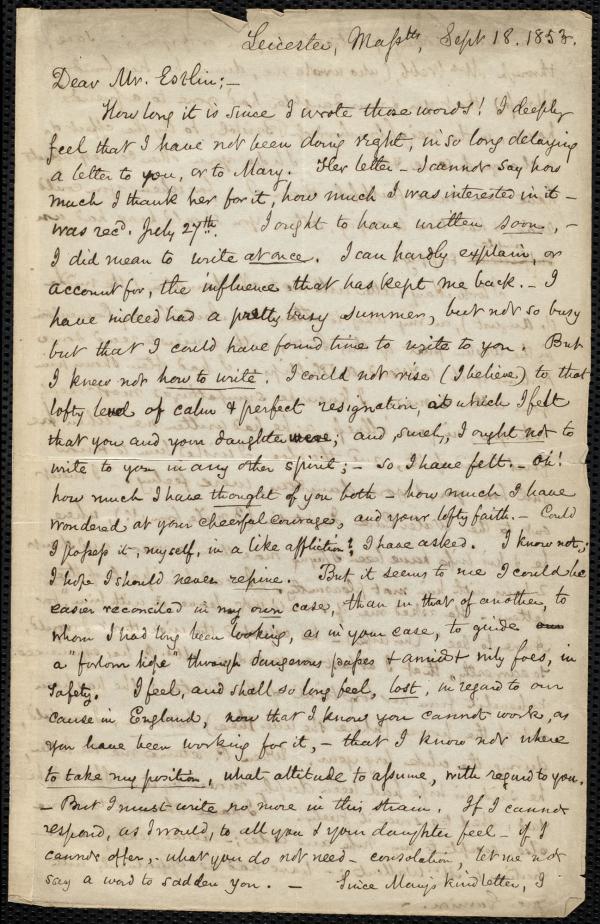 Leicester, Massts, Sept 18. 1853.
Dear Mr. Estlin;—
How long it is since I wrote those words! I deeply
feel that I have not been doing right, in so long delaying
a letter to you, or to Mary. Her letter – I cannot say how
much I thank her for it, how much I was interested in it –
was recd. July 27th. I ought to have written soon, –
I did mean to write at once. I can hardly explain, or
account for, the influence that has kept me back. – I
have indeed had a pretty busy summer, but not so busy
but that I could have found time to write to you. But
I knew not how to write. I could not rise (I believe) to that
lofty level of calm & perfect resignation, at which I felt
that you and your daughter were; and, surely, I ought not to
write to you in any other spirit; – so I have felt. – Oh!
how much I have thought of you both – how much I have
wondered at your cheerful courage, and your lofty faith. – Could
I possess it, myself, in a like affliction? I have asked. I know not;
I hope I should never repine. But it seems to me I could be
easier reconciled in my own case, than in that of another, to
whom I had long been looking, as in your case, to guide
a "forlorn hope" through dangerous passes & amidst wily foes, in
safety. I feel, and shall so long feel, lost, in regard to our
cause in England, now that I know you cannot work, as
you have been working for it, – that I know not where
to take my position, what attitude to assume, with regard to you.
– But I must write no more in this strain. If I cannot
respond, as I would, to all you & your daughter feel – if I
cannot offer, – what you do not need – consolation, let me not
say a word to sadden you. – Since Mary's kind letter, I